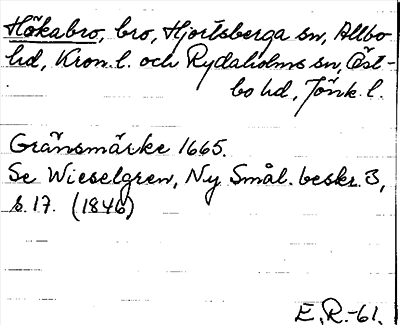 Hökabro, bro, Hjortsberga sn, Allbo
hd, Kron. l. och Rydaholms sn, Öst-
bo hd, Jönk. l.
Gränsmärke 1665.
Se Wieselgren, Ny Smål. beskr. 3,
s. 17. (1846)
E. R. -61.